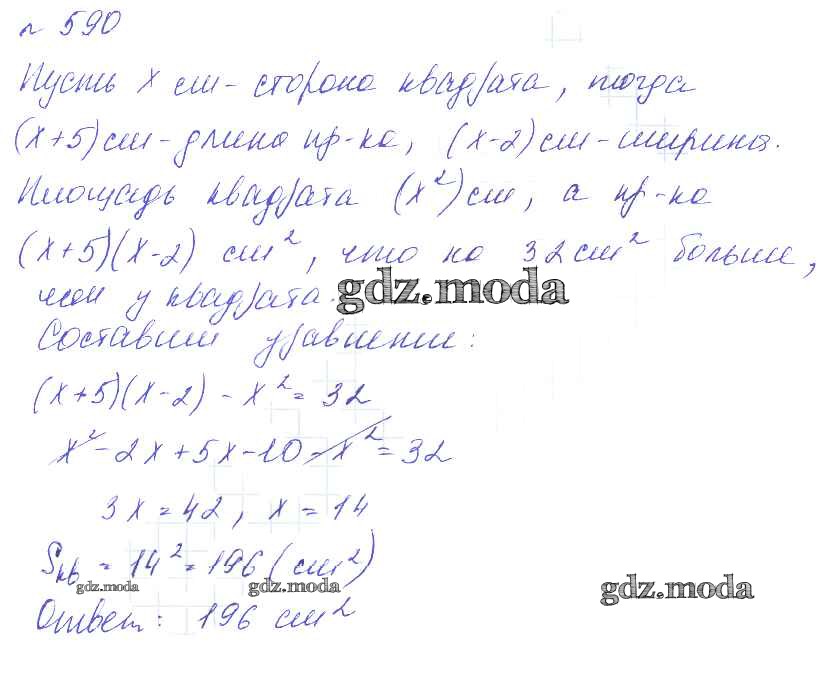 № 590
Пусть x см - сторона квадрата, тогда
(x+5) см - длина пр-ка, (x-2) см - ширина.
Площадь квадрата (x²) см, а пр-ка
(x+5)(x-2) см², что на 32 см² больше,
чем у квадрата.
gdz.moda
Составим уравнение:
(x+5)(x-2) - x² = 32
x² - 2x + 5x - 10 - x² = 32
3x = 42, x = 14
Sкв = 14² = 196 (см²)
gdz.moda gdz.moda gdz.moda
Ответ: 196 см²